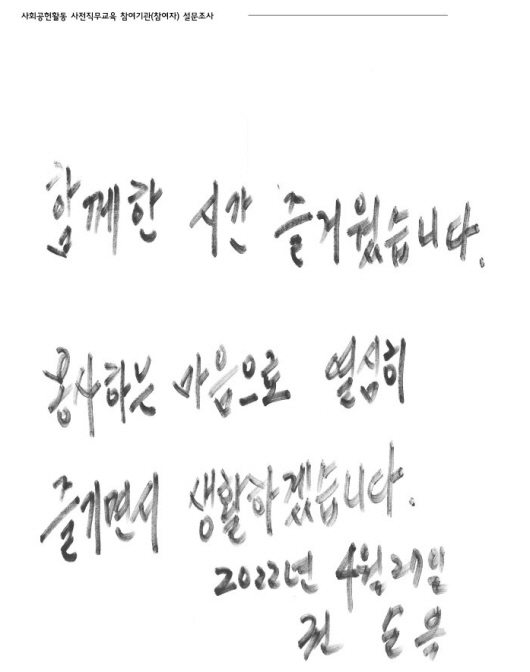 사회공헌활동 사전직무교육 참여기관(참여자) 설문조사
함께한 시간 즐거웠습니다.
봉사하는 마음으로 열심히
즐기면서 생활하겠습니다.
2022년 4월 27일